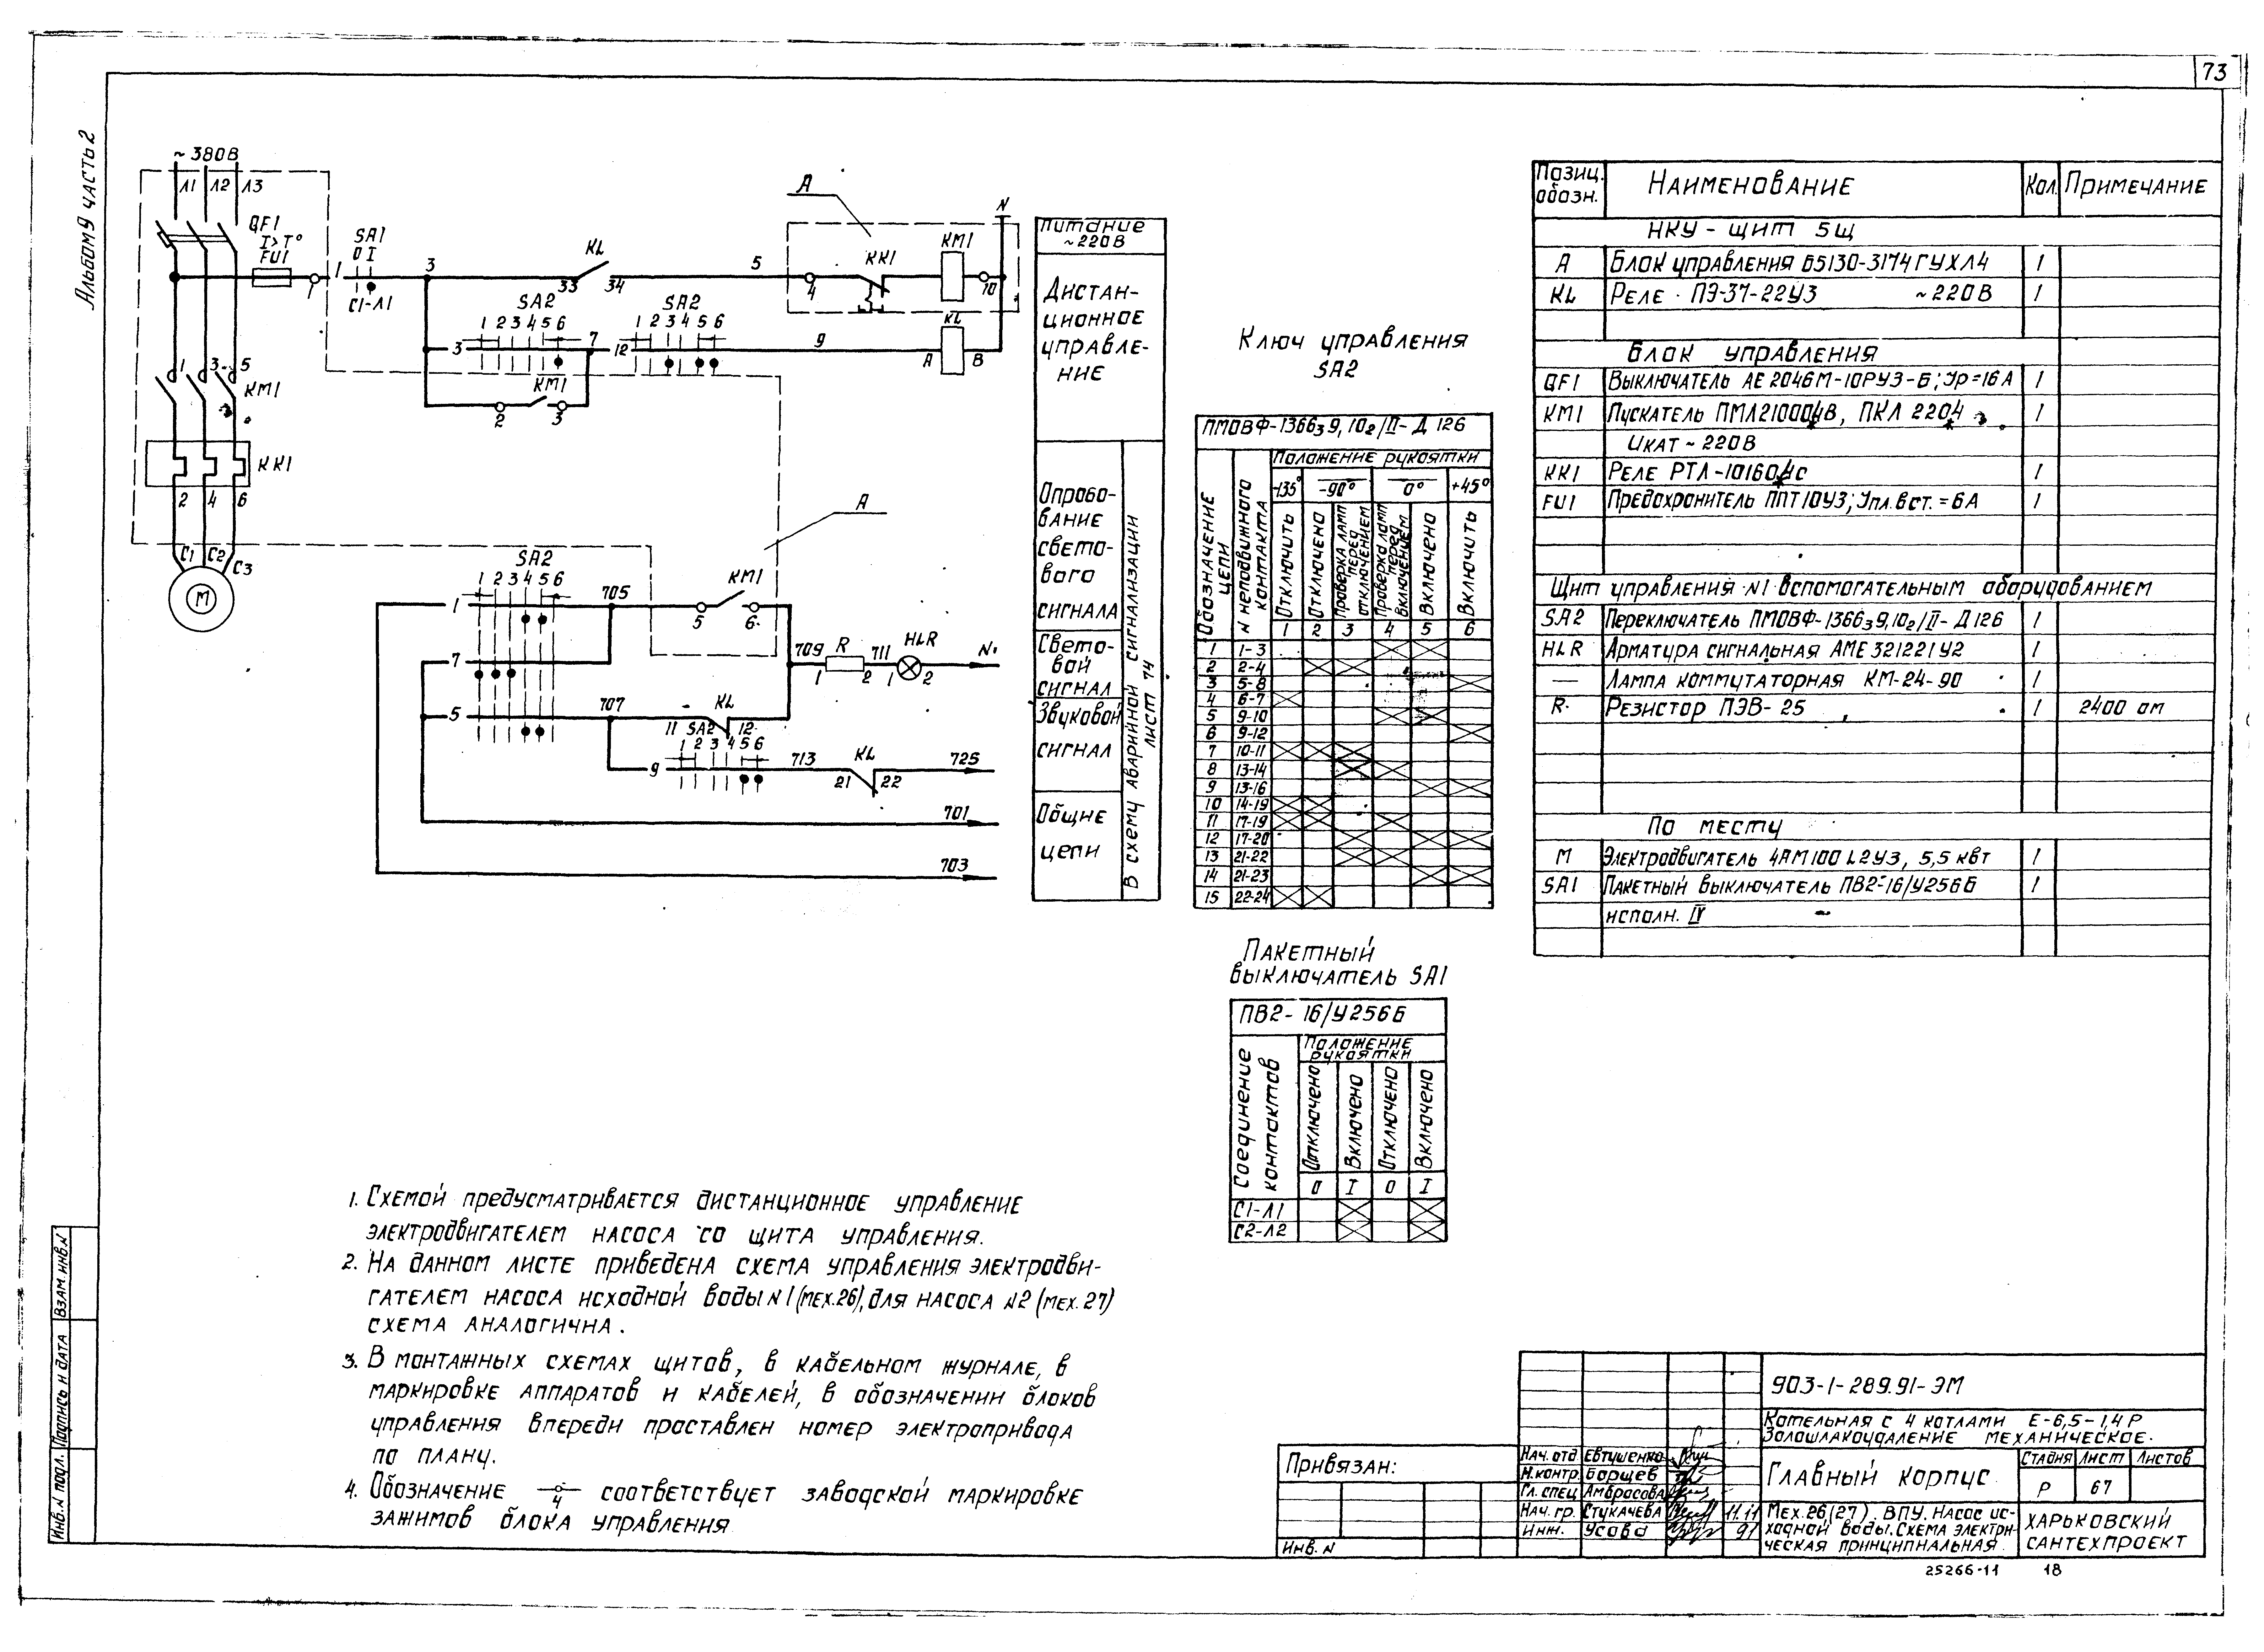 73
Альбом 9 часть 2
~380В
Л1 Л2 Л3
QF1
I> T°
FU1
1
SA1
0 I
С1-Л1
1
3
KL
33 34
5
А
4
KK1
KM1
10
N
SA2
1 2 3 4 5 6
3
7
SA2
1 2 3 4 5 6
12
9
KL
А В
KM1
2 3
1 3 5
KM1
KK1
2 4 6
С1 С2 С3
М
SA2
1 2 3 4 5 6
1
705
KM1
5 6
А
7
709 R 711 HLR
1 2 1 2
N
5
707
KL
11 12
SA2
1 2 3 4 5 6
9
713
KL
21 22
725
701
703
Питание
~220В
Дистан-
ционное
управле-
ние
Опробо-
вание
свето-
вого
сигнала
Свето-
вой
сигнал
Звуковой
сигнал
Общие
цепи
В схему аварийной сигнализации
лист 74
Ключ управления
SA2
ПМОВФ-1366₃9,10₂/II-Д126
Обозначение цепи
N неподвижного контакта
Положение рукоятки
-135° -90° 0° +45°
Отключить
Отключено
Проверка ламп перед отключением
Проверка ламп перед включением
Включено
Включить
1 2 3 4 5 6
1 1-3
2 2-4
3 5-8
4 6-7
5 9-10
6 9-12
7 10-11
8 13-14
9 13-16
10 14-19
11 17-19
12 17-20
13 21-22
14 21-23
15 22-24
Пакетный
выключатель SA1
ПВ2-16/У256Б
Соединение контактов
Положение
рукоятки
Отключено
Включено
Отключено
Включено
0 I 0 I
С1-Л1
С2-Л2
Позиц. обозн. Наименование Кол. Примечание
НКУ - щит 5щ
А Блок управления Б5130-3174ГУХЛ4 1
KL Реле ПЭ-37-22У3 ~220В 1
Блок управления
QF1 Выключатель АЕ2046М-10РУ3-Б; Jр=16А 1
KM1 Пускатель ПМЛ210004В, ПКЛ 2204 1
Uкат~220В
KK1 Реле РТЛ-101604С 1
FU1 Предохранитель ППТ10У3; Jпл.вст.=6А 1
Щит управления N1 вспомогательным оборудованием
SA2 Переключатель ПМОВФ-1366₃9,10₂/II-Д126 1
HLR Арматура сигнальная АМЕ321221У2 1
— Лампа коммутаторная КМ-24-90 1
R Резистор ПЭВ-25 1 2400 ом
По месту
М Электродвигатель 4АМ100L2У3, 5,5 квт 1
SA1 Пакетный выключатель ПВ2-16/У256Б 1
исполн. IV
1. Схемой предусматривается дистанционное управление
электродвигателем насоса со щита управления.
2. На данном листе приведена схема управления электродви-
гателем насоса исходной воды N1 (мех.26), для насоса N2 (мех.27)
схема аналогична.
3. В монтажных схемах щитов, в кабельном журнале, в
маркировке аппаратов и кабелей, в обозначении блоков
управления впереди проставлен номер электропривода
по плану.
4. Обозначение 4 соответствует заводской маркировке
зажимов блока управления
Взам. инв. N
Подпись и дата
Инв. N подл.
Привязан:
Инв. N
Нач. отд. Евтушенко
Н.контр. Борщев
Гл. спец. Амбросова
Нач. гр. Стукачева 11.11
Инж. Усова 91
903-1-289.91-ЭМ
Котельная с 4 котлами Е-6,5-1,4Р
Золошлакоудаление механическое.
Главный корпус
Стадия Лист Листов
Р 67
Мех.26(27). ВПУ. Насос ис-
ходной воды. Схема электри-
ческая принципиальная.
Харьковский
Сантехпроект
25266-11 18